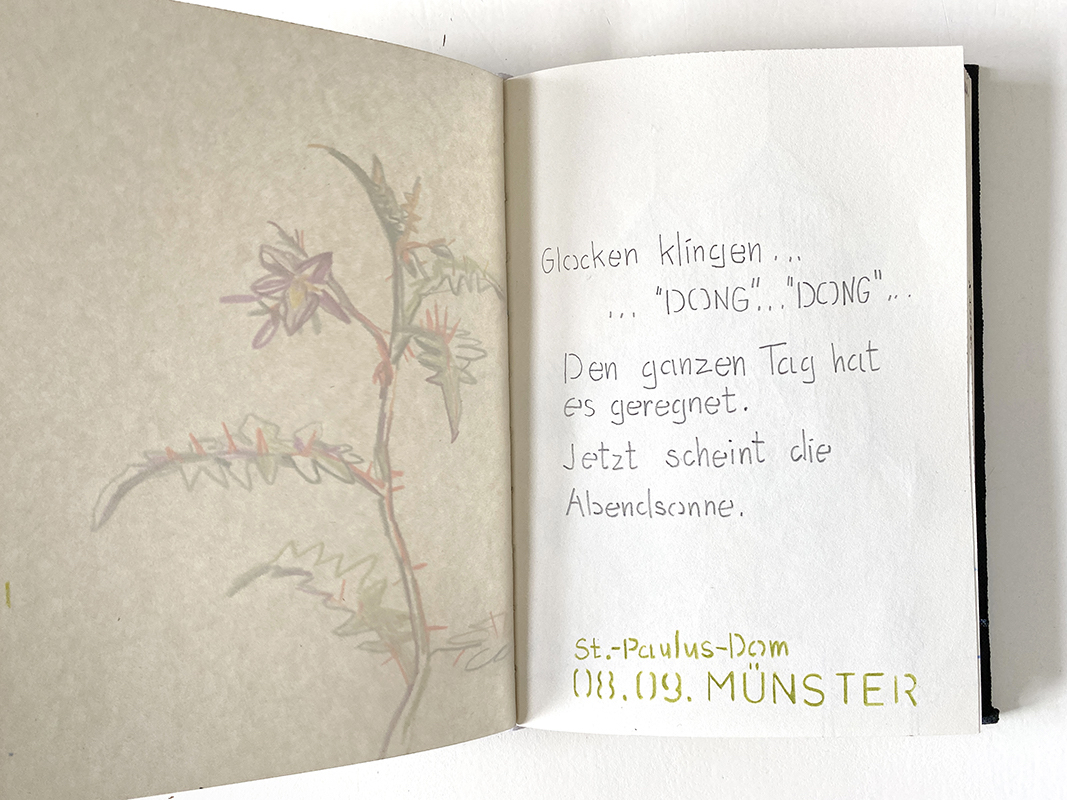 Glocken klingen...
... "DONG"..."DONG"...
Den ganzen Tag hat
es geregnet.
Jetzt scheint die
Abendsonne.
St.-Paulus-Dom
08.09. MÜNSTER